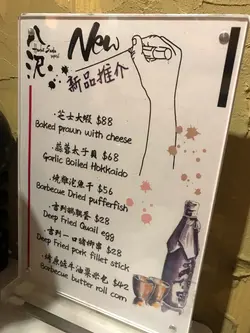 八泥
Hachi Sake
New
新品推介
·芝士大蝦 $88
Baked prawn with cheese
·蒜蓉太子貝 $68
Garlic Boiled Hokkaido
·燒雞泡魚干 $56
Barbecue Dried pufferfish
·吉列鵪鶉蛋 $28
Deep Fried Quail egg
·吉列一口豬柳串 $28
Deep Fried pork fillet stick
·燒原粒牛油粟米包 $42
Barbecue butter roll corn